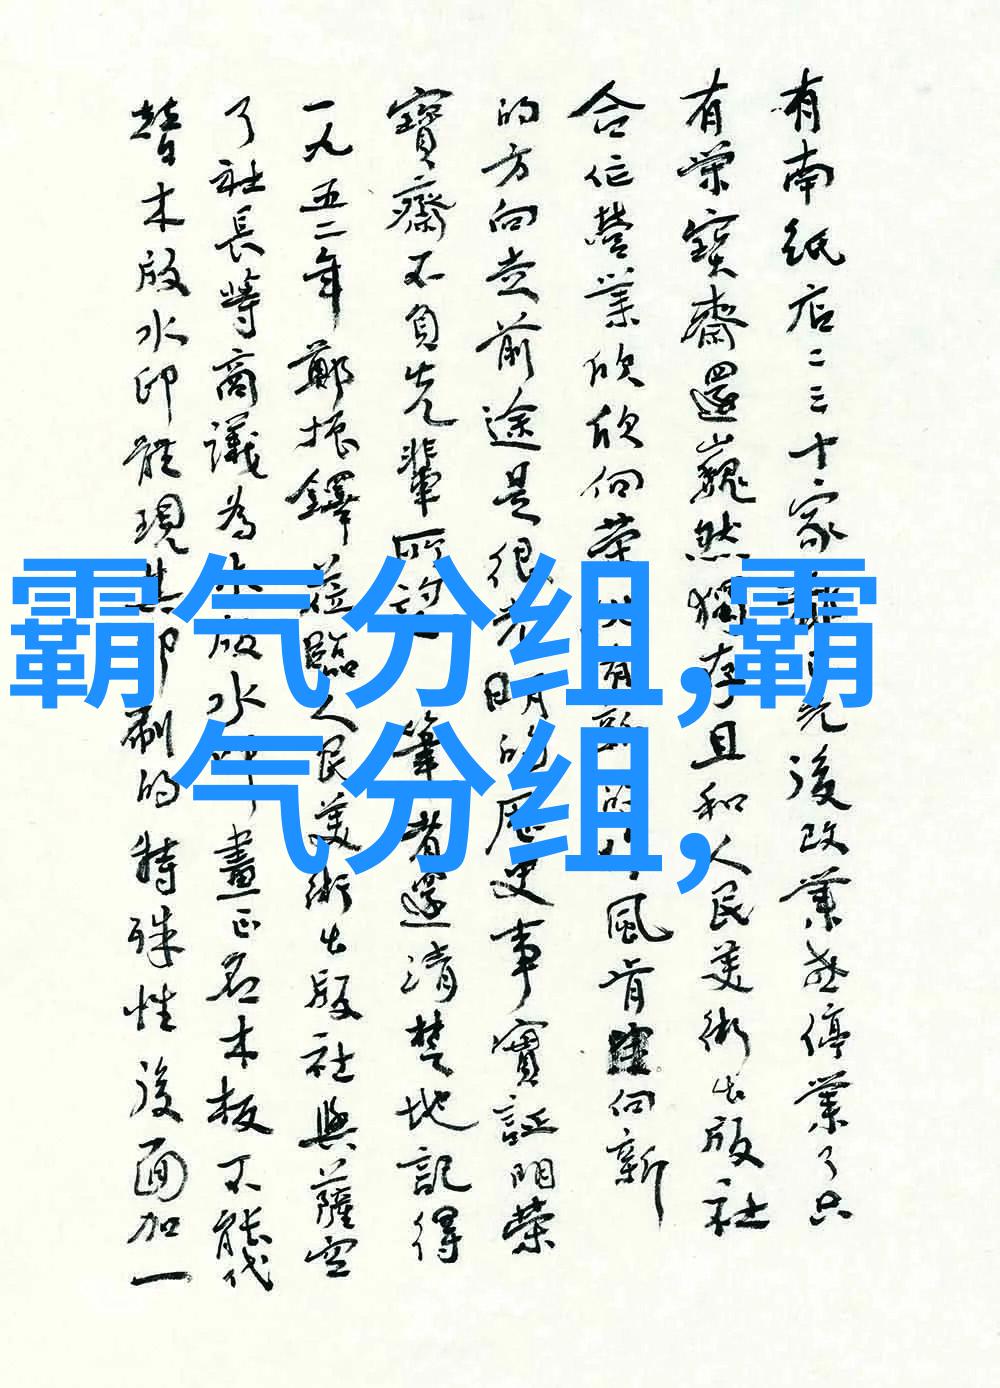 有南紙店二三十家先後改業或停業了只
有榮寶齋還巍然獨存且和人民美術出版社
合作營業欣欣向榮有新的作風肯向新
的方向走前途是很光明的歷史事實証明榮
寶齋不負先輩所託筆者還清楚地記得
一九五二年鄭振鐸蒞臨人民美術出版社與薩空
了社長等商議為木版水印畫正名木板不能代
替木版水印能現其印刷的特殊性後面加一
霸气分组,霸
气分组,